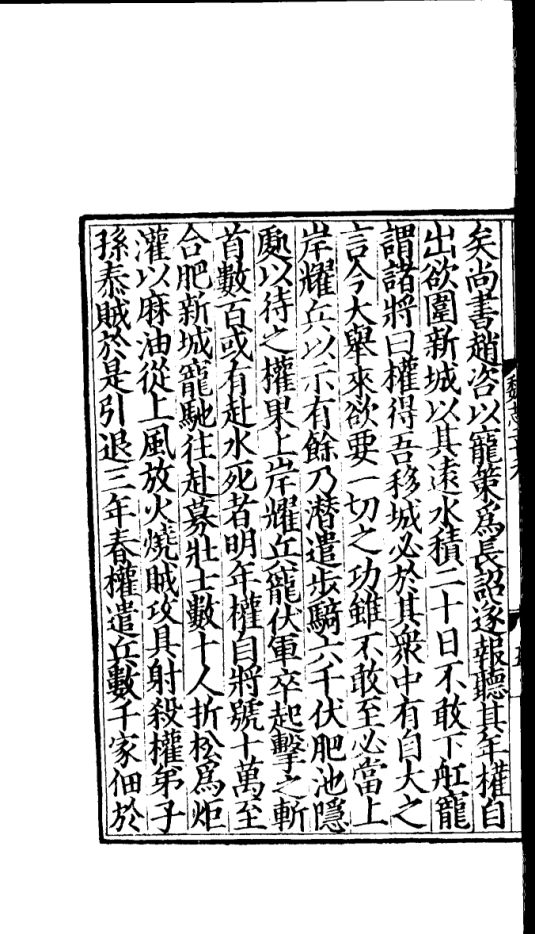 矣尚書趙咨以寵策爲長詔遂報聽其年權自
出欲圍新城以其遠水積二十日不敢下舡寵
謂諸將曰權得吾移城必於其衆中有自大之
言今大舉來欲要一切之功雖不敢至必當上
岸耀兵以示有餘乃潜遣步騎六千伏肥池隱
處以待之權果上岸耀兵寵伏軍卒起擊之斬
首數百或有赴水死者明年權自將號十萬至
合肥新城寵馳往赴募壯士數十人折松爲炬
灌以麻油從上風放火燒賊攻具射殺權弟子
孫泰賊於是引退三年春權遣兵數千家佃於